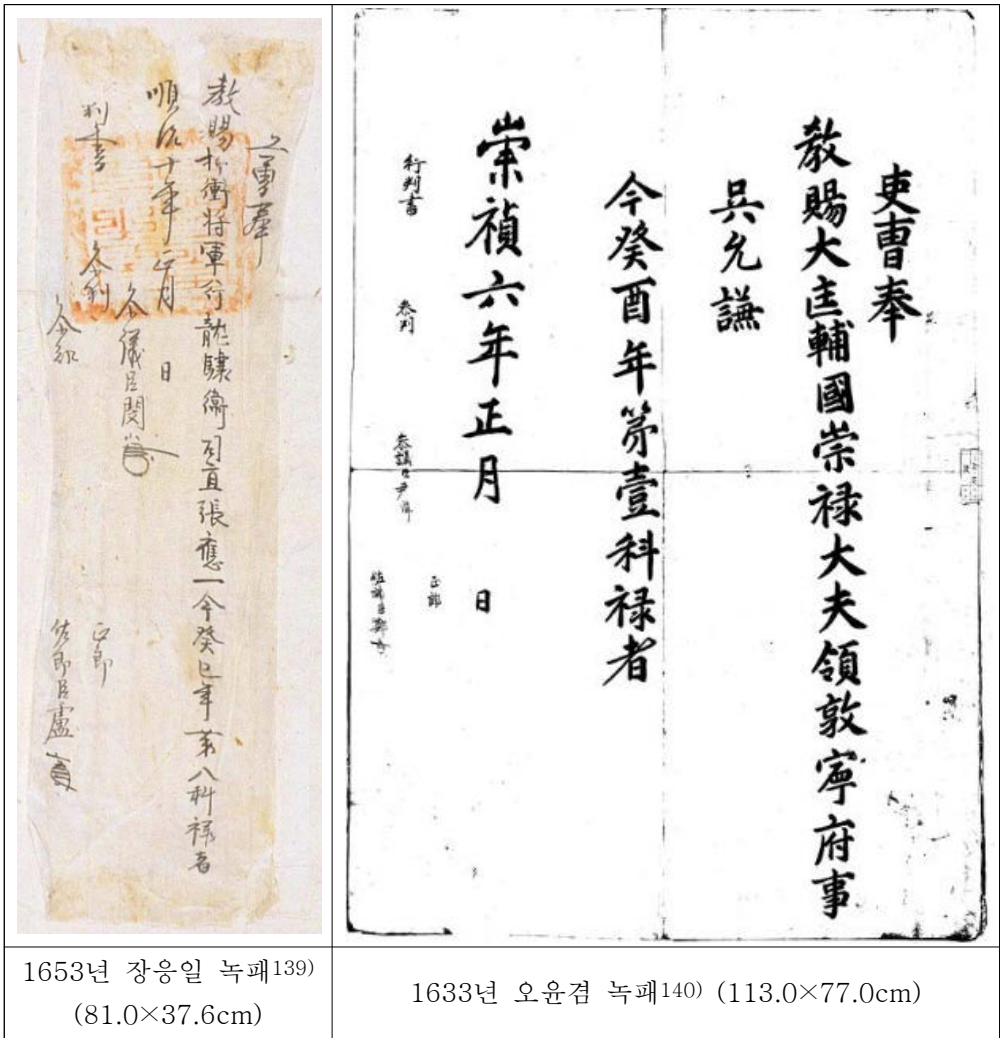 兵曹奉
教賜折衝将軍行龍驤衛司直張應一今癸巳年第八科禄者
順治十年正月 日
判書
參判
參議臣閔
參知
正郎
佐郎臣盧
吏曹奉
教賜大匡輔國崇禄大夫領敦寧府事
吳允謙
今癸酉年第壹科禄者
崇禎六年正月 日
行判書
參判
參議臣尹
正郎
佐郎臣鄭
1653년 장응일 녹패139)
(81.0×37.6cm)
1633년 오윤겸 녹패140) (113.0×77.0cm)